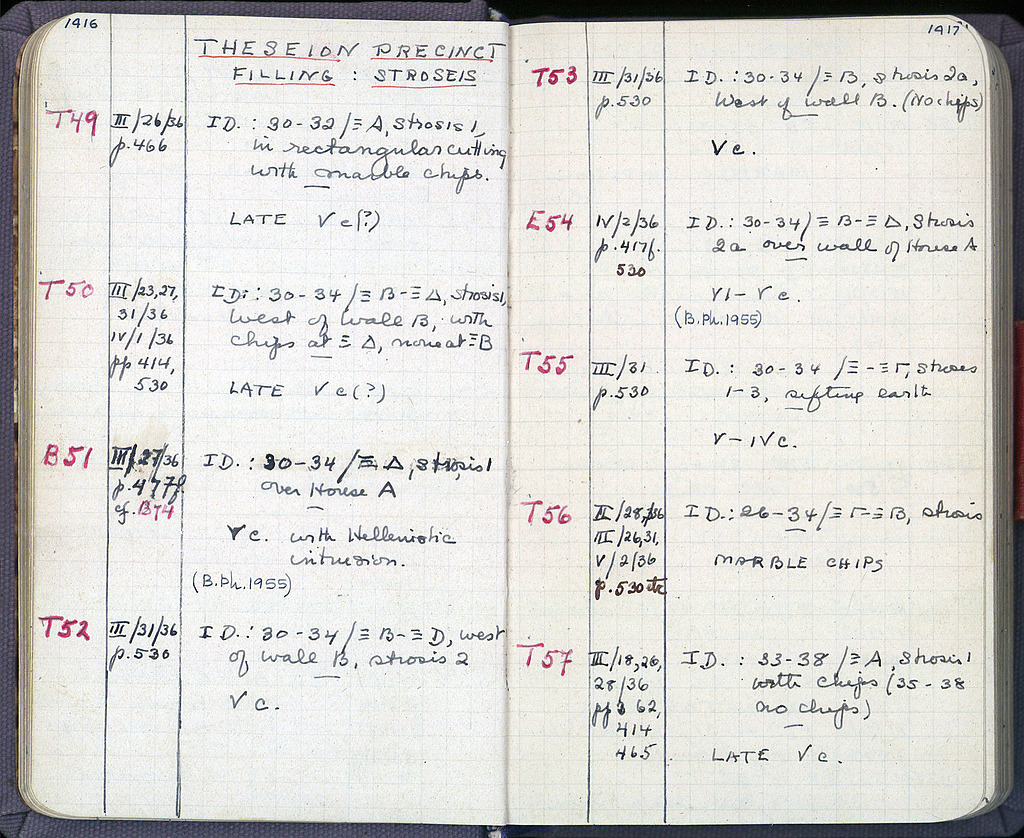 1416
THESEION PRECINCT
FILLING : STROSEIS
T49 III/26/36 ID.: 30-32/Ξ A, strosis 1,
p.466 in rectangular cutting
with marble chips.
LATE V c(?)
T50 III/23,27, ID.: 30-34/Ξ B-Ξ Δ, strosis 1,
31/36 west of wall B, with
IV/1/36 chips at Ξ Δ, none at Ξ B
pp 414,
530 LATE V c(?)
B51 III/27/36 ID.: 30-34/Ξ Δ, strosis 1
p.477f. over House A
cf. B74
V c. with Hellenistic
intrusion.
(B.Ph.1955)
T52 III/31/36 ID.: 30-34/Ξ B-Ξ D, west
p.530 of wall B, strosis 2
V c.
1417
T53 III/31/36 ID.: 30-34/Ξ B, strosis 2a,
p.530 West of wall B. (No chips)
V c.
E54 IV/2/36 ID.: 30-34/Ξ B-Ξ Δ, Strosis
p.417f. 2a over wall of House A
530
VI-V c.
(B.Ph.1955)
T55 III/31 ID.: 30-34/Ξ -Ξ Γ, stroses
p.530 1-3, sifting earth
V-IV c.
T56 II/28/36 ID.: 26-34/Ξ Γ-Ξ B, strosis
III/26,31,
V/2/36 MARBLE CHIPS
p.530 etc
T57 III/18,26, ID.: 33-38/Ξ A, Strosis 1
28/36 with chips (35-38
pp 62, no chips)
414
465 LATE V c.